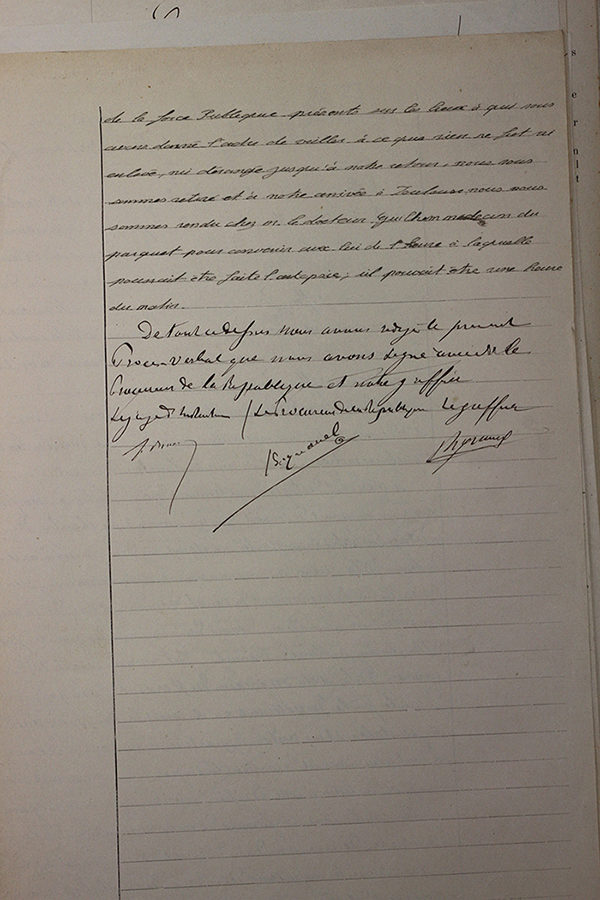 de la force Publique présents sur les lieux à qui nous
avons donné l'ordre de veiller à ce que rien ne fut ni
enlevé, ni dérangé jusqu'à notre retour, nous nous
sommes retiré et à notre arrivée à Toulouse nous nous
sommes rendu chez m. le docteur Guilhem medecin du
parquet pour convenir avec lui de l'heure à laquelle
pourrait être faite l'autopsie; il pouvait être une heure
du matin.
De tout ce dessus nous avons rédigé le present
Proces-verbal que nous avons signé avec le
Procureur de la Republique et notre greffier
Le juge d'Instruction / Le Procureur de la République Le greffier
s
e
r
o
lt